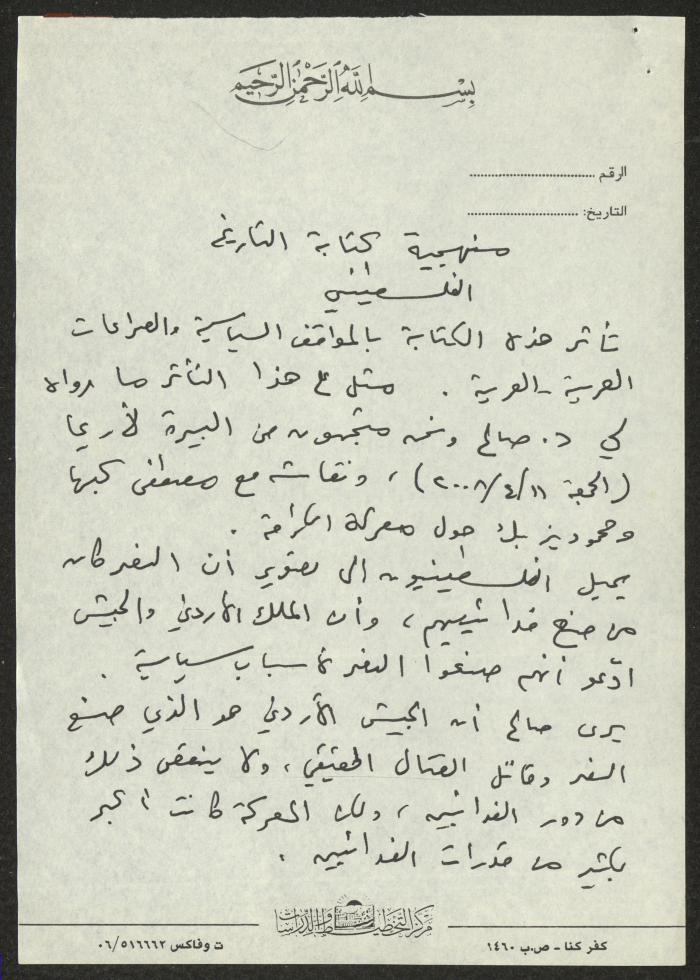 بسم الله الرحمن الرحيم
الرقم ................................
التاريخ: ................................
منهجية كتابة التاريخ
الفلسطيني
تأثر هذه الكتابة بالمواقف السياسية والصراعات
العربية - العربية . مثل على هذا التأثر ما رواه
لي د. صالح ونحن متجهون من البيرة لأريحا
(الجمعة ١١/٤/٢٠٠٨) ، ونقاشه مع مصطفى كبها
ومحمود يزبك حول معركة الكرامة .
يميل الفلسطينيون الى تصوير أن النصر كان
من صنع فدائييهم ، وأن الملك الأردني والجيش
ادّعو أنهم صنعوا النصر لأسباب سياسية .
يرى صالح أن الجيش الأردني هو الذي صنع
النصر وقاتل القتال الحقيقي ، ولا ينقص ذلك
من دور الفدائيين ، ولكن المعركة كانت أكبر
بكثير من قدرات الفدائيين .
مركز التخطيط والدراسات
كفر كنا - ص.ب ١٤٦٠
ت وفاكس ٠٦/٥١٦٦٦٢